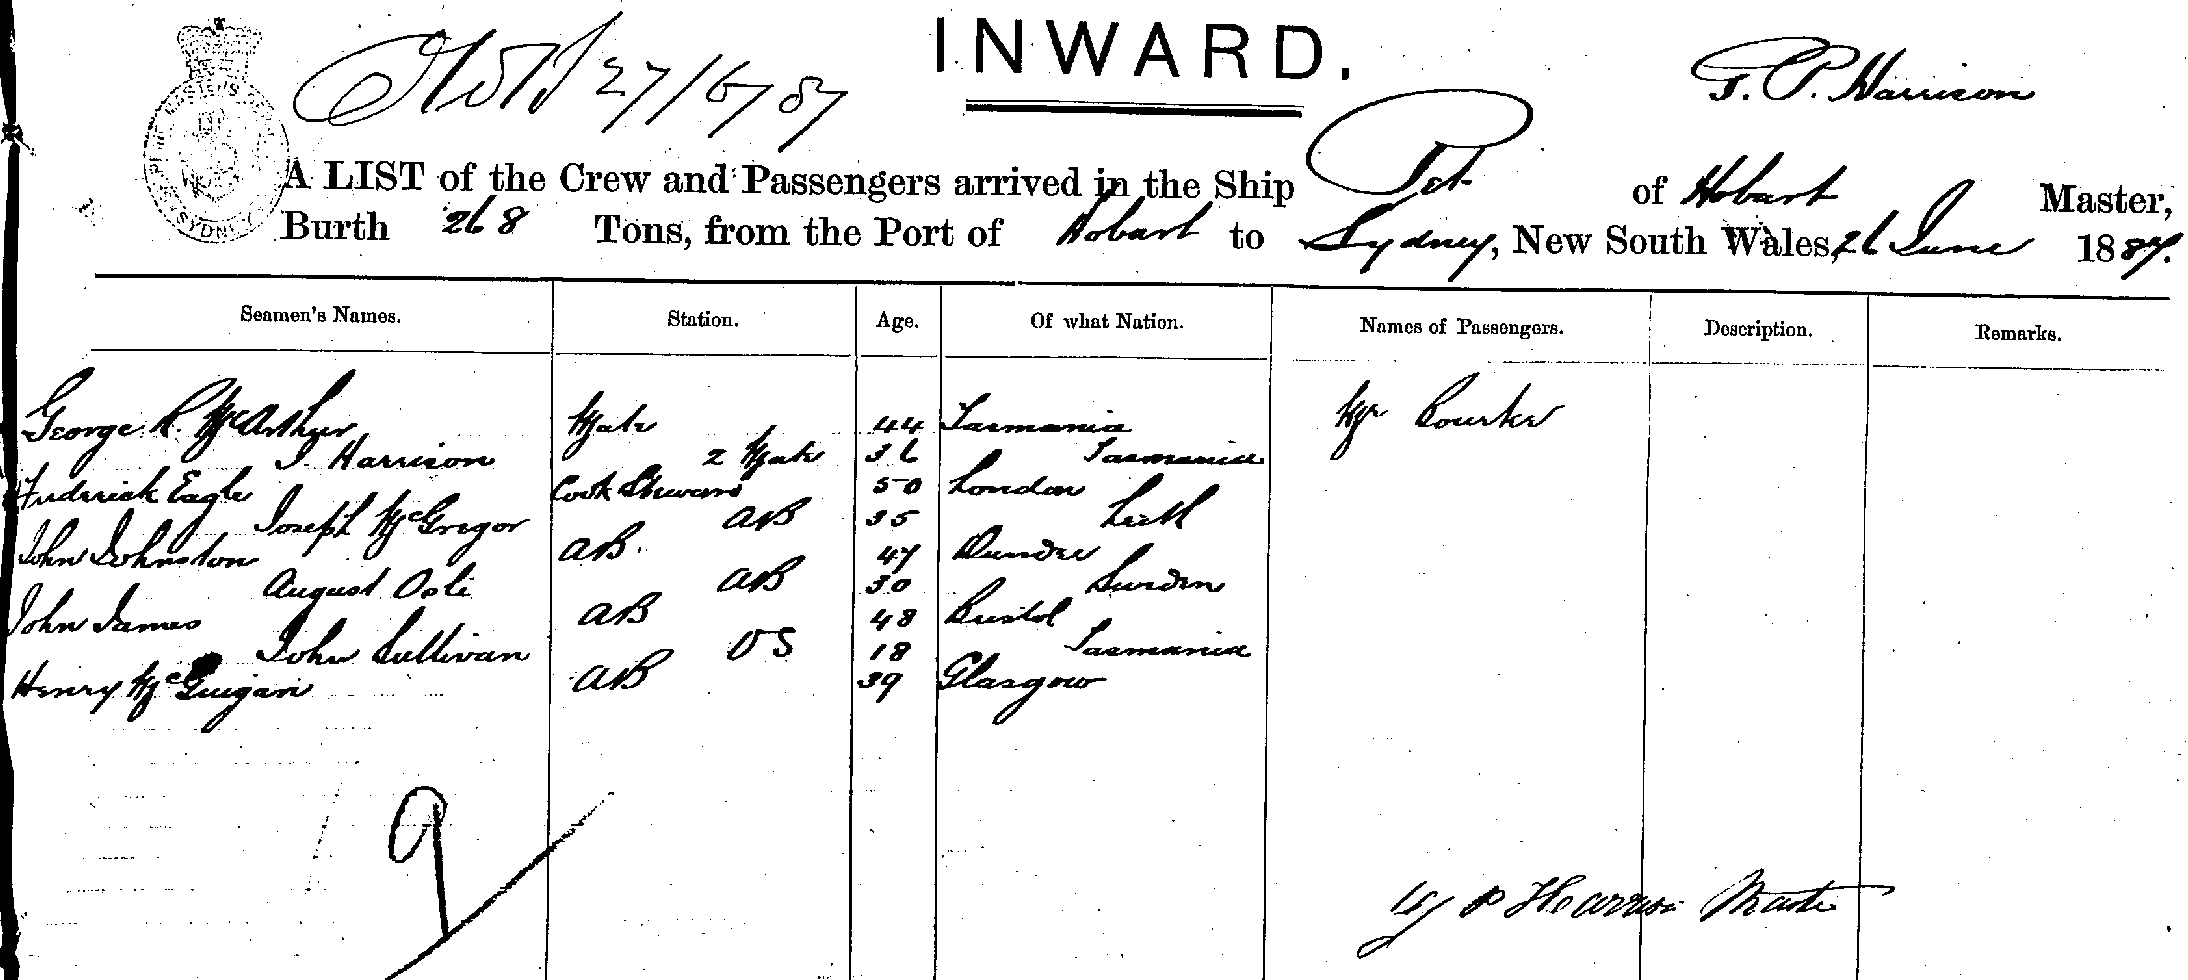 INWARD.
27/6/87
G. P. Harrison
A LIST of the Crew and Passengers arrived in the Ship Pet of Hobart Master,
Burth 268 Tons, from the Port of Hobart to Sydney, New South Wales, 26 June 1887.
Seamen's Names. Station. Age. Of what Nation. Names of Passengers. Description. Remarks.
George R. McArthur Mate 44 Tasmania Mr Bourke
J. Harrison 2 Mate 36 Tasmania
Frederick Eagle Cook Steward 50 London
Joseph McGregor AB 35 Leith
John Johnston AB. 47 Dundee
August AB 30 Sweden
John James AB 48 Bristol
John Sullivan OS 18 Tasmania
Henry McGuigan AB 39 Glasgow
9
P Harrison Master
SYDNEY